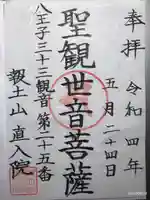 奉拝
令和四年
五月二十四日
聖観世音菩薩
八王子三十三観音第二十五番
土山直入院